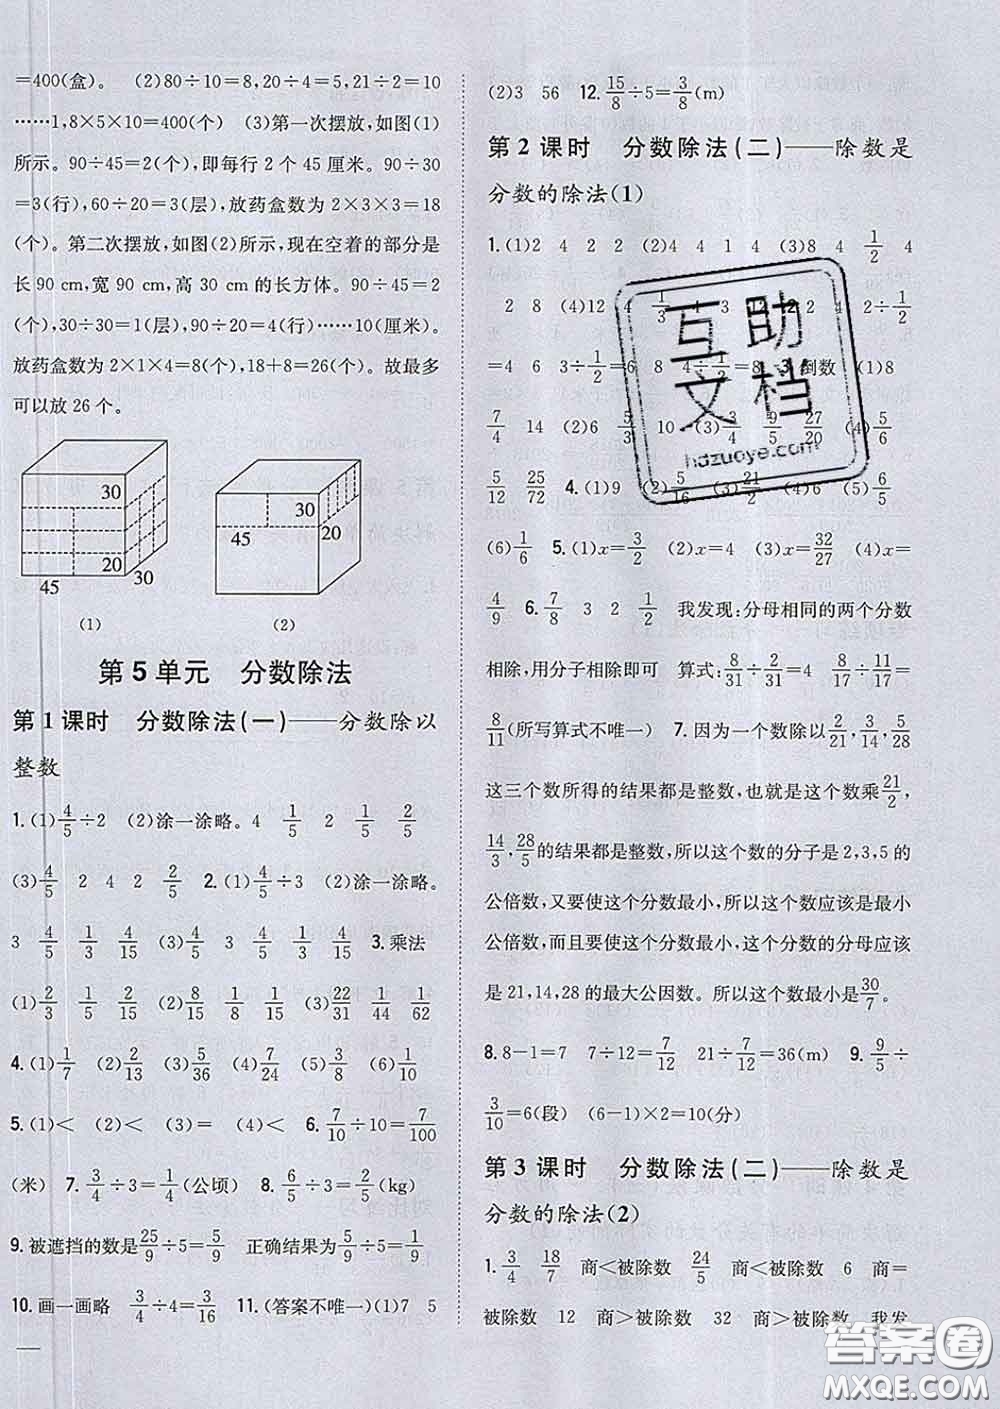 =400(盒)。 (2)80÷10=8,20÷4=5,21÷2=10
……1,8×5×10=400(个) (3)第一次摆放,如图(1)
所示。90÷45=2(个),即每行 2 个 45 厘米。90÷30
=3(行),60÷20=3(层),放药盒数为 2×3×3=18
(个)。第二次摆放,如图(2)所示,现在空着的部分是
长 90 cm,宽 90 cm,高 30 cm 的长方体。90÷45=2
(个),30÷30=1(层),90÷20=4(行)……10(厘米)。
放药盒数为 2×1×4=8(个),18+8=26(个)。故最多
可以放 26 个。
30 20 45 30
30 45 20
(1) (2)
第 5 单元 分数除法
第 1 课时 分数除法(一)——分数除以
整数
1.(1)4/5÷2 (2)涂一涂略。4 1/5 2 1/5 2/5
(3)4/5 2 4 2 2/5 2.(1)4/5÷3 (2)涂一涂略。
3 4/5 1/3 4/15 (3)4/5 3 1/3 4/15 3.乘法
(1)2/3 1/5 2/15 (2)8/15 1/8 1/15 (3)22/31 1/44 1/62
4.(1)1/7 (2)2/13 (3)5/36 (4)7/24 (5)3/10 (6)1/10
5.(1)< (2)< (3)= (4)< 6.7/10÷10=7/100
(米) 7.3/4÷3=1/4(公顷) 8.6/5÷3=2/5(kg)
9.被遮挡的数是25/9÷5=5/9 正确结果为5/9÷5=1/9
10.画一画略 3/4÷4=3/16 11.(答案不唯一)(1)7 5
(2)3 56 12.15/8÷5=3/8(m)
第 2 课时 分数除法(二)——除数是
分数的除法(1)
1.(1)2 4 2 2 (2)4 4 1 4 (3)8 4 1/2 4
2 8 (4)12 4 1/3 4 12 2.2 4 2÷1/2
=4 6 3÷1/2=6 8 4÷1/2=8 3.倒数 (1)8
7/4 14 (2)6 6/5 10 (3)3/4 9/5 27/20 (4)5/6
5/12 25/72 4.(1)9 (2)5/16 (3)21/2 (4) (5)6/5
(6)1/6 5.(1)x=3/2 (2)x=4 (3)x=32/27 (4)x=
4/9 6.7/8 3 2 1/2 我发现:分母相同的两个分数
相除,用分子相除即可 算式:8/31÷2/31=4 8/17÷11/17=
8/11(所写算式不唯一) 7.因为一个数除以2/21,3/14,5/28
这三个数所得的结果都是整数,也就是这个数乘21/2,
14/3,28/5的结果都是整数,所以这个数的分子是 2,3,5 的
公倍数,又要使这个分数最小,所以这个数应该是最小
公倍数,而且要使这个分数最小,这个分数的分母应该
是 21,14,28 的最大公因数。所以这个数最小是30/7。
8.8-1=7 7÷12=7/12 21÷7/12=36(m) 9.9/5÷
3/10=6(段) (6-1)×2=10(分)
第 3 课时 分数除法(二)——除数是
分数的除法(2)
1.3/4 18/7 商<被除数 24/5 商<被除数 6 商=
被除数 12 商>被除数 32 商>被除数 我发
互助
文档
hdzuoye.com
答案圈
MXQE.COM